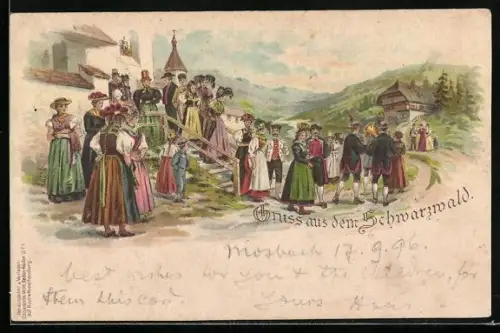 Gruss aus dem Schwarzwald.
Mosbach 17.9.96.
best wishes for you & the children, for
them this card
Yours Hans